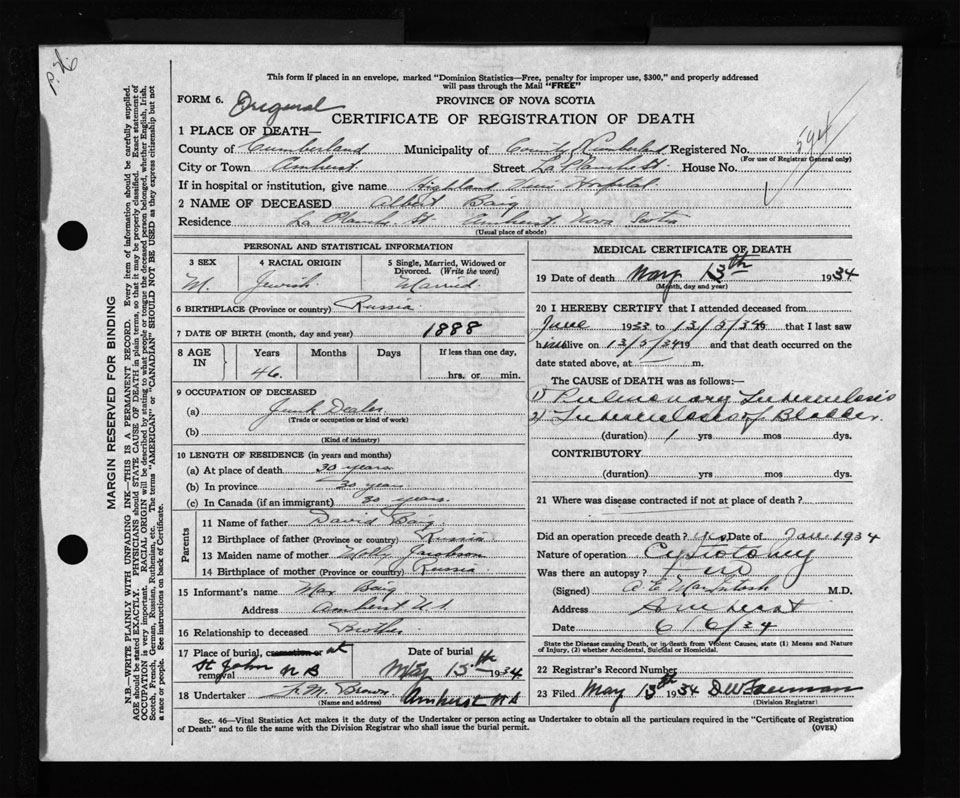 P. H.
This form if placed in an envelope, marked "Dominion Statistics—Free, penalty for improper use, $300," and properly addressed
will pass through the Mail "FREE"
FORM 6. Original
PROVINCE OF NOVA SCOTIA
CERTIFICATE OF REGISTRATION OF DEATH
594
1 PLACE OF DEATH—
County of Cumberland Municipality of County Cumberland Registered No.
(For use of Registrar General only)
City or Town Amherst Street La Planche St. House No.
If in hospital or institution, give name Highland View Hospital
2 NAME OF DECEASED Albert Baig
Residence La Planche St Amherst Nova Scotia
(Usual place of abode)
PERSONAL AND STATISTICAL INFORMATION
3 SEX 4 RACIAL ORIGIN 5 Single, Married, Widowed or
Divorced. (Write the word)
M. Jewish Married
6 BIRTHPLACE (Province or country) Russia
7 DATE OF BIRTH (month, day and year) 1888
8 AGE IN Years Months Days If less than one day,
46 hrs. or min.
9 OCCUPATION OF DECEASED
(a) Junk Dealer
(Trade or occupation or kind of work)
(b)
(Kind of industry)
10 LENGTH OF RESIDENCE (in years and months)
(a) At place of death 30 years
(b) In province 30 years
(c) In Canada (if an immigrant) 30 years.
Parents
11 Name of father David Baig
12 Birthplace of father (Province or country) Russia
13 Maiden name of mother Molly Jacobson
14 Birthplace of mother (Province or country) Russia
15 Informant's name Max Baig
Address Amherst N.S.
16 Relationship to deceased Brother
17 Place of burial, cremation or at Date of burial
St John N B May 15th 1934
removal
18 Undertaker F. M. Brown Amherst N S
(Name and address)
MEDICAL CERTIFICATE OF DEATH
19 Date of death May 13th 1934
(Month, day and year)
20 I HEREBY CERTIFY that I attended deceased from
June 1933 to 13/5/34 19 that I last saw
him alive on 13/5/34 19 and that death occurred on the
date stated above, at m.
The CAUSE of DEATH was as follows:—
1) Pulmonary Tuberculosis
2) Tuberculosis of Bladder.
(duration) 1 yrs mos dys.
CONTRIBUTORY
(duration) yrs mos dys.
21 Where was disease contracted if not at place of death?
Did an operation precede death? yes Date of Jan 1934
Nature of operation Cystotomy
Was there an autopsy? no
(Signed) MacIntosh M.D.
Address Amherst
Date 6/6/34
State the Disease causing Death, or in death from Violent Causes, state (1) Means and Nature
of Injury, (2) whether Accidental, Suicidal or Homicidal.
22 Registrar's Record Number
23 Filed May 13th 1934
(Division Registrar)
Sec. 46—Vital Statistics Act makes it the duty of the Undertaker or person acting as Undertaker to obtain all the particulars required in the "Certificate of Registration
of Death" and to file the same with the Division Registrar who shall issue the burial permit.
(OVER)
MARGIN RESERVED FOR BINDING
N.B.—WRITE PLAINLY WITH UNFADING INK—THIS IS A PERMANENT RECORD. Every item of information should be carefully supplied.
AGE should be stated EXACTLY. PHYSICIANS should STATE CAUSE OF DEATH in plain terms, so that it may be properly classified. Exact statement of
OCCUPATION is very important. RACIAL ORIGIN will be described by stating to what people or tongue the deceased person belonged, whether English, Irish,
Scotch, French, German, Russian, Ruthenian, etc. The terms "AMERICAN" or "CANADIAN" SHOULD NOT BE USED as they express citizenship but not
a race or people. See instructions on back of Certificate.